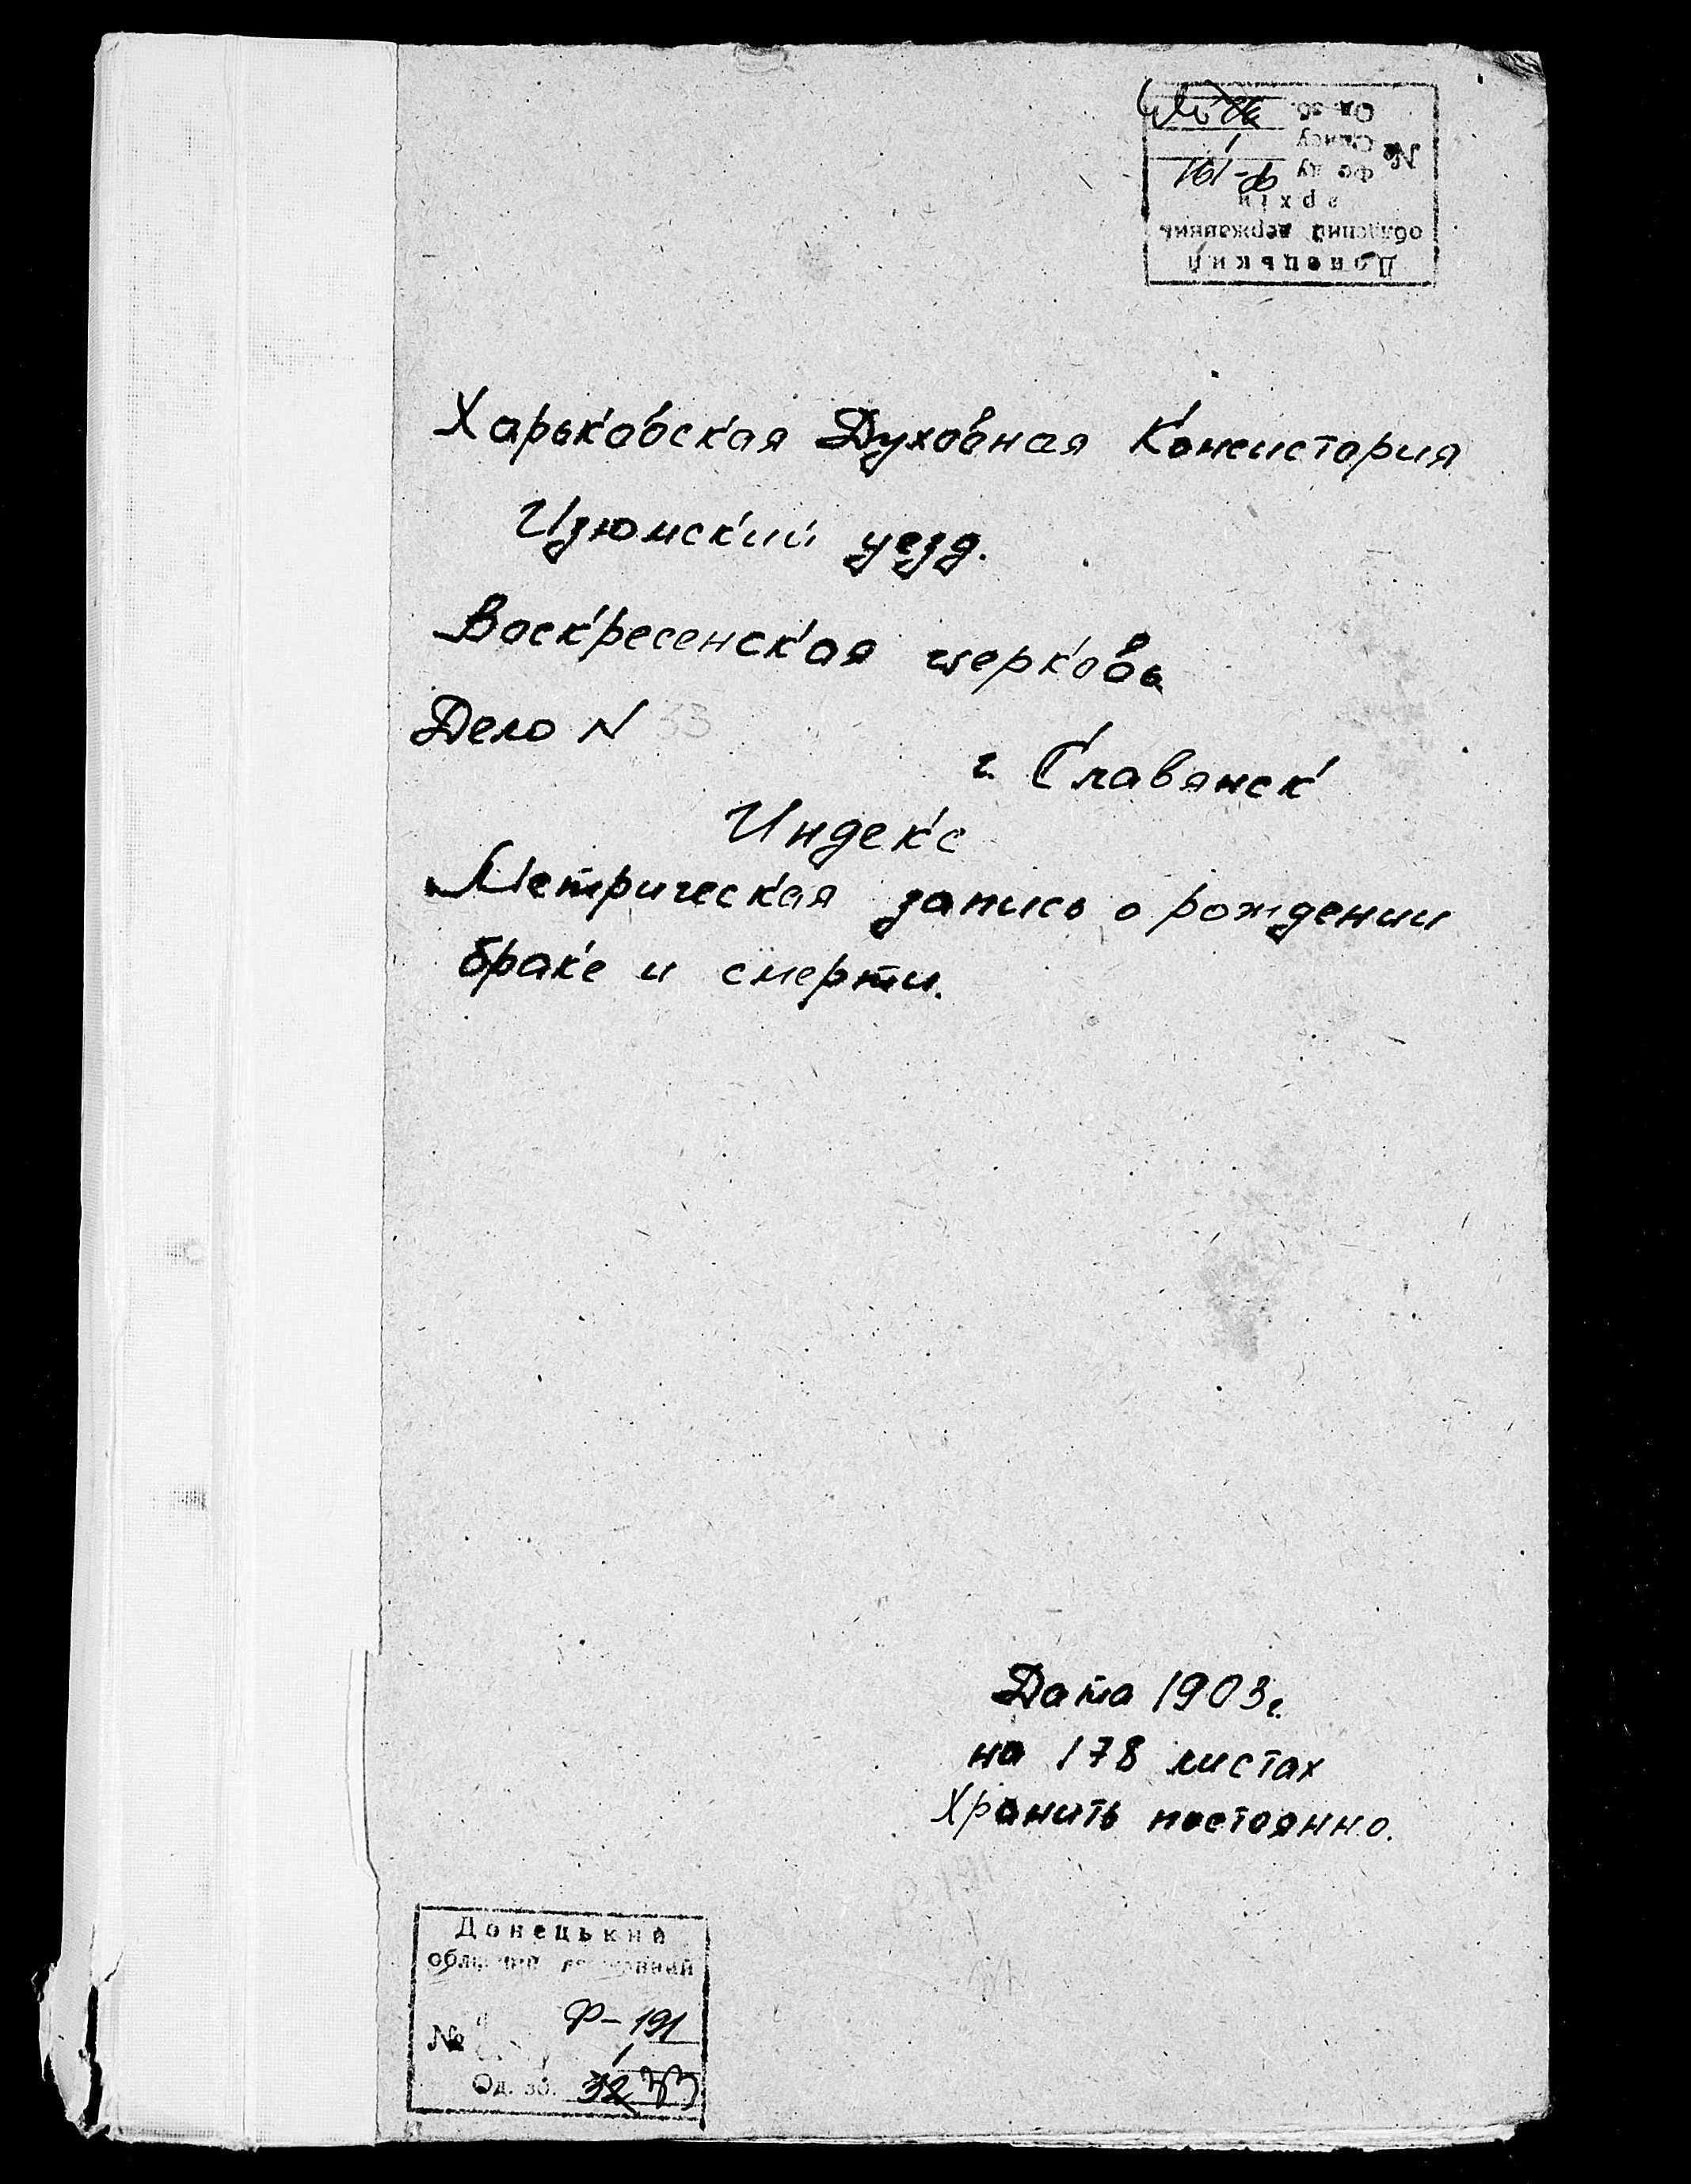 Донецький
обласний державний
архів
№ Фонду Ф-191
Опису 1
Од. зб.
Харьковская Духовная Консистория
Изюмский уезд.
Воскресенская церковь
Дело N 33
г. Славянск
Индекс
Метрическая запись о рождении
браке и смерти.
Дата 1903г.
на 178 листах
Хранить постоянно.
Донецький
обласний державний
№ Ф-191
1
Од. зб. 32 33